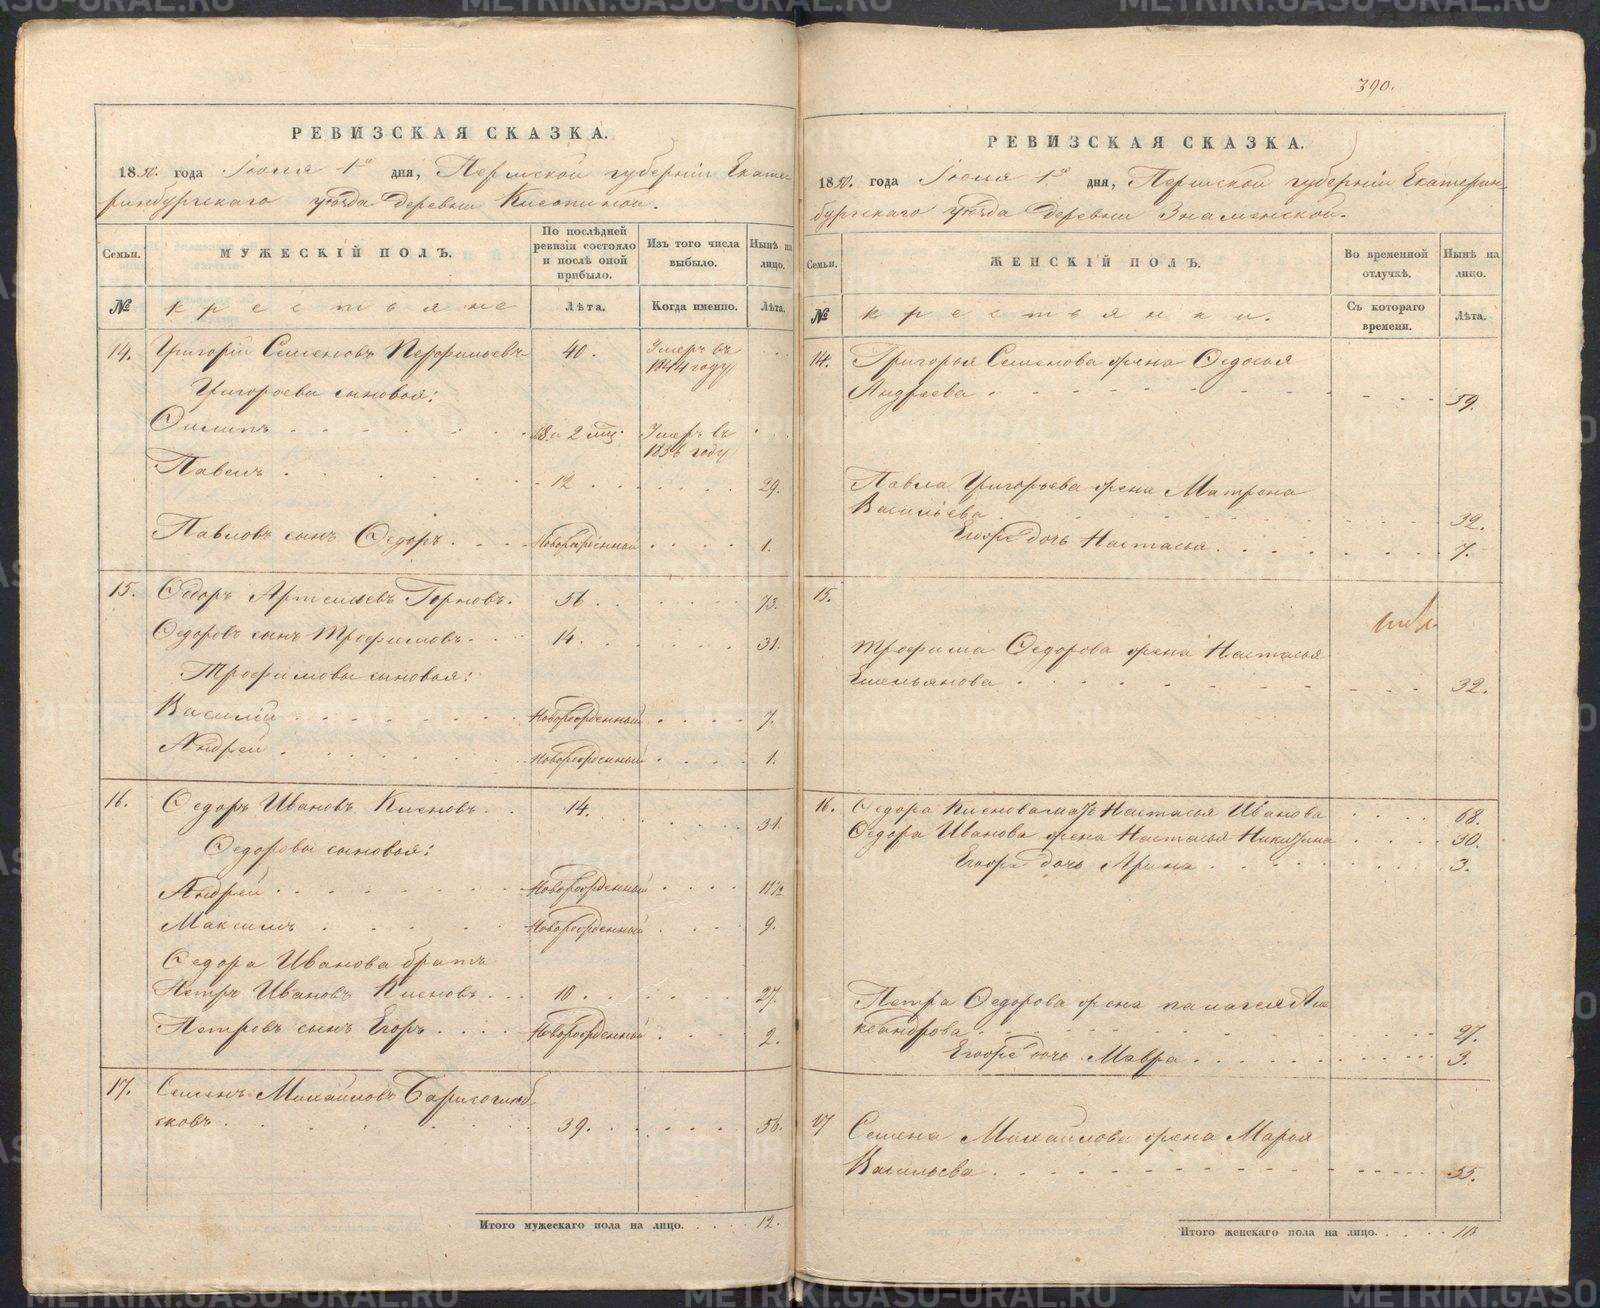 390.
РЕВИЗСКАЯ СКАЗКА.
1850. года Іюля 1го дня, Пермской губерніи Екате-
ринбургскаго уѣзда деревни
Семьи.
МУЖЕСКІЙ ПОЛЪ.
По послѣдней ревизіи состояло и послѣ оной прибыло.
Изъ того числа выбыло.
Нынѣ на лицо.
№
крестьяне
Лѣта.
Когда именно.
Лѣта.
14. Григорій Семеновъ Перфильевъ 40. Умеръ въ 1844 году
Григорьевы сыновья:
Филипъ Умеръ въ 1836 году
Павелъ 12 29.
Павловъ сынъ Федоръ Новорожденный 1.
15. Федоръ Артемьевъ Горновъ. 56 73.
Федоровъ сынъ Трофимовъ 14. 31.
Трофимовы сыновья:
Василій Новорожденный 7.
Андрей Новорожденный 1.
16. Федоръ Ивановъ 14. 31.
Федоровы сыновья:
Андрей Новорожденный 11½
Максимъ Новорожденный 9.
Федора Иванова братъ
Петръ Ивановъ 10 27.
Петровъ сынъ Егоръ Новорожденный 2.
17. Семенъ Михайловъ
39. 56.
Итого мужескаго пола на лицо. 12.
РЕВИЗСКАЯ СКАЗКА.
1850. года Іюля 1го дня, Пермской губерніи Екатерин-
бургскаго уѣзда деревни Знаменской.
Семьи.
ЖЕНСКІЙ ПОЛЪ.
Во временной отлучкѣ.
Нынѣ на лицо.
№
крестьянки.
Съ котораго времени.
Лѣта.
14. Григорья Семенова жена Федосья
Андреева 59.
Павла Григорьева жена Матрена
Васильева 32.
Егоже дочь Настасья 7.
15.
Трофима Федорова жена Настасья
Емельянова 32.
16. Федора мать Настасья Иванова 68.
Федора Иванова жена Настасья Никитина 30.
Егоже дочь Арина 3.
Петра Федорова жена Палагея Але
ксандрова 27.
Егоже дочь Мавра 3.
17 Семена Михайлова жена Марья
Васильева 55.
Итого женскаго пола на лицо. 10
METRIKI.GASO-URAL.RU